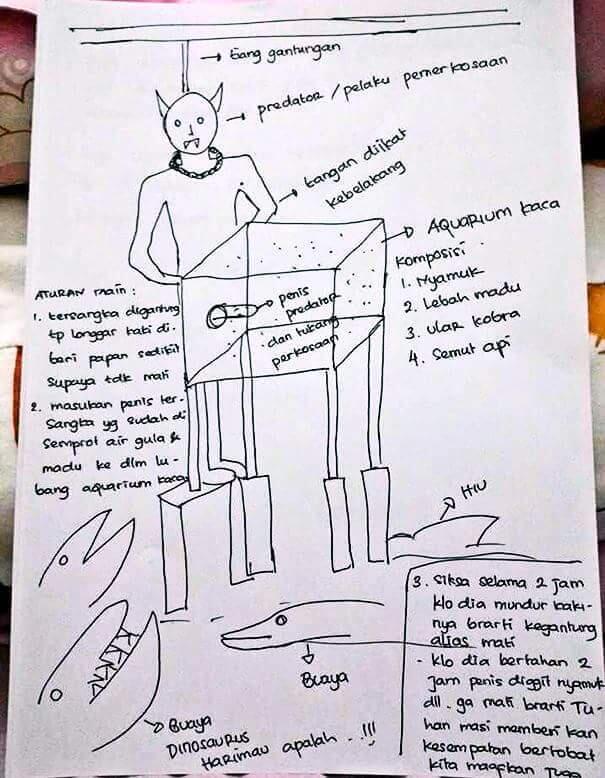 Tiang gantungan
predator / pelaku pemerkosaan
tangan diikat
kebelakang
AQUARIUM kaca
Komposisi :
1. Nyamuk
2. Lebah madu
3. Ular kobra
4. Semut api
penis
predator
dan tukang
perkosaan
ATURAN main :
1. tersangka digantung
tp longgar kaki di-
beri papan sedikit
supaya tdk mati
2. masukan penis ter-
sangka yg sudah di
semprot air gula &
madu ke dlm lu-
bang aquarium kaca
HIU
Buaya
Buaya
DINOSAURUS
HARIMAU apalah . . !!!
3. Siksa selama 2 jam
klo dia mundur kaki-
nya brarti kegantung
alias mati
- klo dia bertahan 2
jam penis diggit nyamuk
dll. ga mati brarti Tu-
han masi memberi kan
kesempatan bertobat
kita maafkan